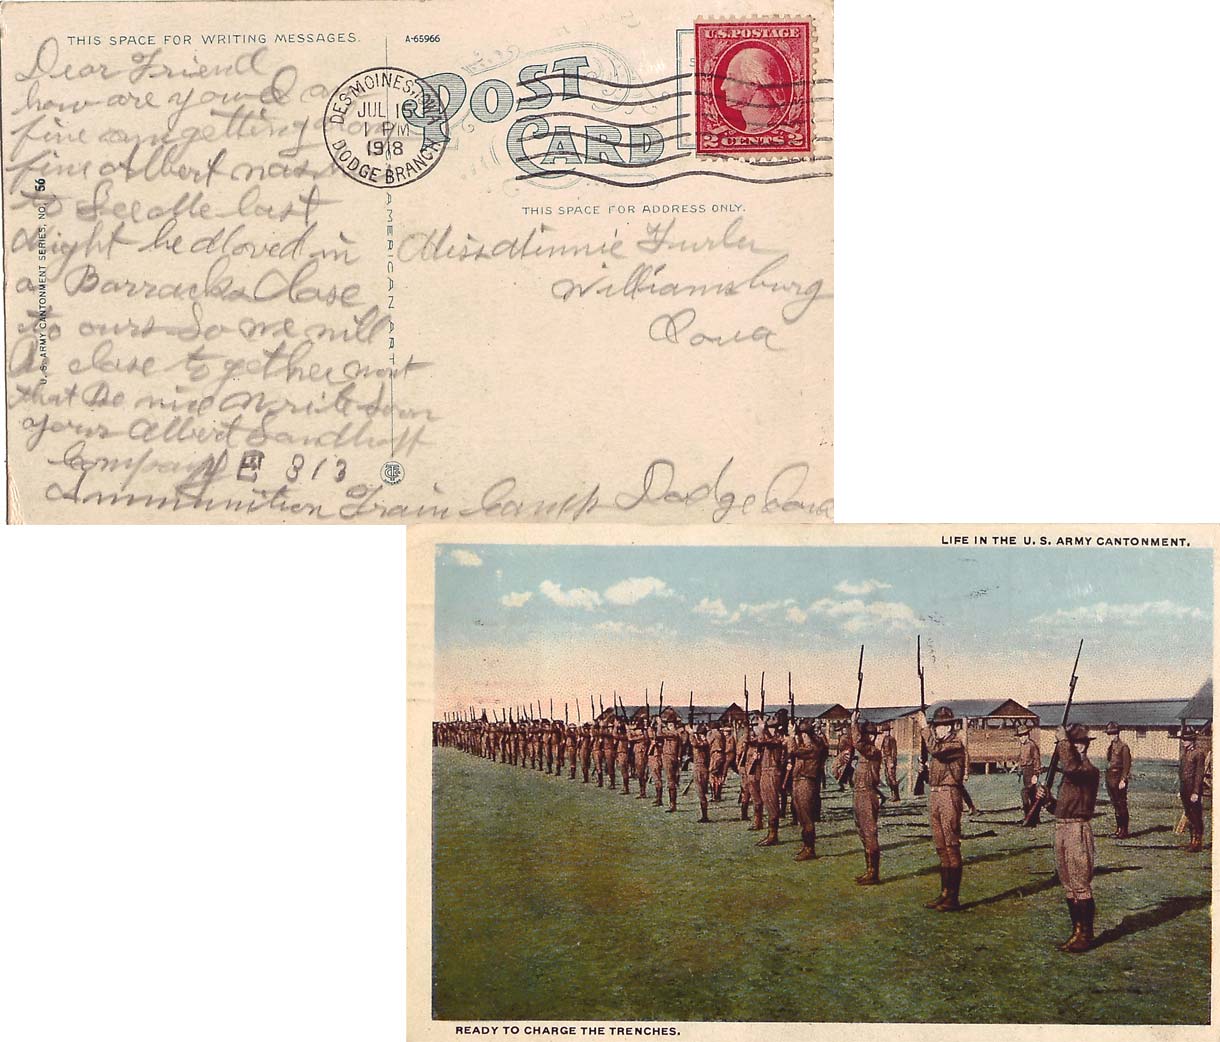 THIS SPACE FOR WRITING MESSAGES.
A-65966
POST CARD
U.S. POSTAGE
2 CENTS 2
DES MOINES, IOWA
JUL 16
1 PM
1918
DODGE BRANCH
THIS SPACE FOR ADDRESS ONLY.
U. S. ARMY CANTONMENT SERIES, NO. 56
AMERICAN ART
Dear Friend
how are you I
fine am getting
fine Albert was
to See me last
Night he Moved in
a Barracks Close
to ours So we will
be close together wont
that be nice Write Soon
yours Albert Sandhoff
Company E 313
Ammunition Train Camp Dodge Iowa
Miss Minnie
Williamsburg
Iowa
LIFE IN THE U. S. ARMY CANTONMENT.
READY TO CHARGE THE TRENCHES.